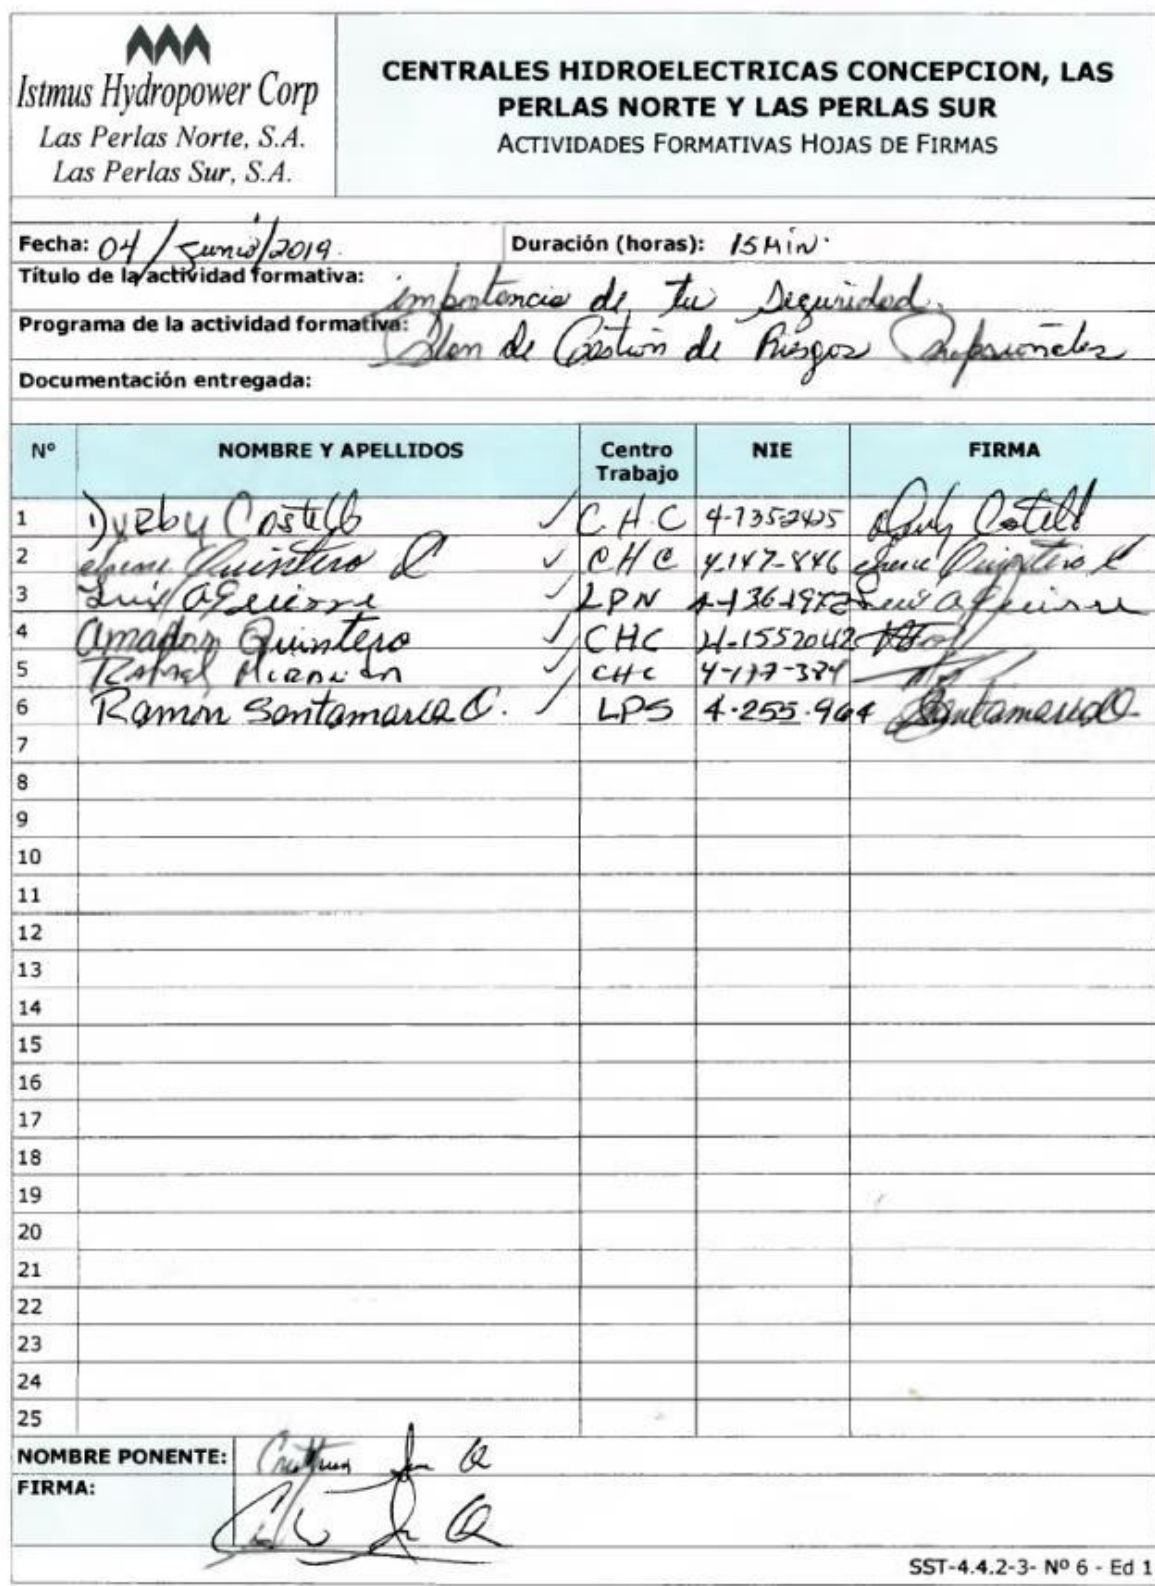 Istmus Hydropower Corp
Las Perlas Norte, S.A.
Las Perlas Sur, S.A.
CENTRALES HIDROELECTRICAS CONCEPCION, LAS
PERLAS NORTE Y LAS PERLAS SUR
ACTIVIDADES FORMATIVAS HOJAS DE FIRMAS
Fecha: 04/Junio/2019. Duración (horas): 15 Min.
Título de la actividad formativa: importancia de tu Seguridad.
Programa de la actividad formativa: Plan de Gestión de Riesgos Profesionales
Documentación entregada:
Nº NOMBRE Y APELLIDOS Centro Trabajo NIE FIRMA
1 Costello ✓ C.H.C 4-
2 Quintero ✓ CHC 4-147-846 Quintero
3 Luis Aguirre ✓ LPN Luis Aguirre
4 Amador Quintero ✓ CHC 4-1552042
5 Rafael Miranda ✓ CHC
6 Ramon Santamaria C. ✓ LPS 4-255-964 Santamaria
7
8
9
10
11
12
13
14
15
16
17
18
19
20
21
22
23
24
25
NOMBRE PONENTE:
FIRMA:
SST-4.4.2-3- Nº 6 - Ed 1